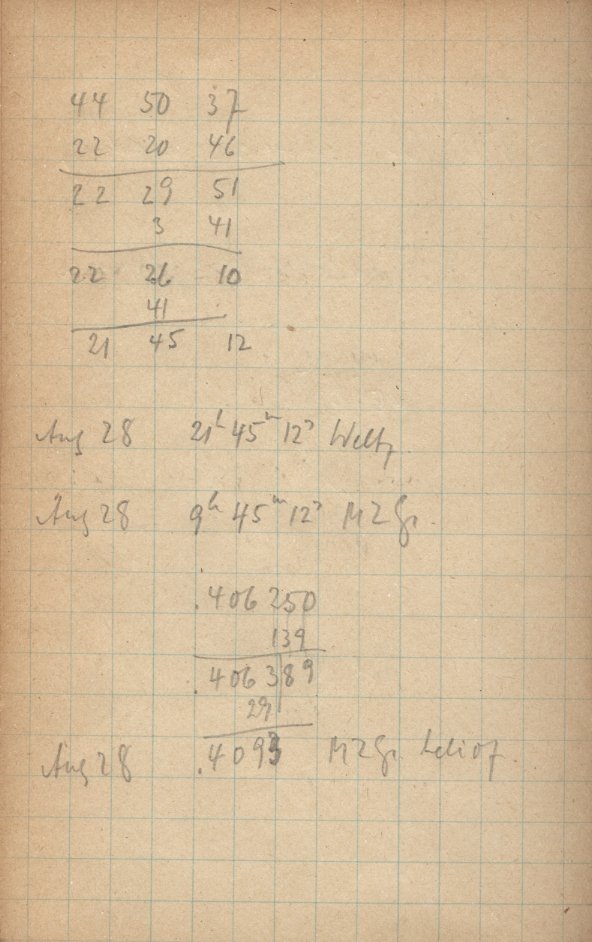 44 50 37
22 20 46
22 29 51
3 41
22 26 10
41
21 45 12
Aug 28 21h 45m 12s Weltz.
Aug 28 9h 45m 12s M Z Gr.
.406250
139
.406389
29
Aug 28 .4093 M Z Gr. helioz.